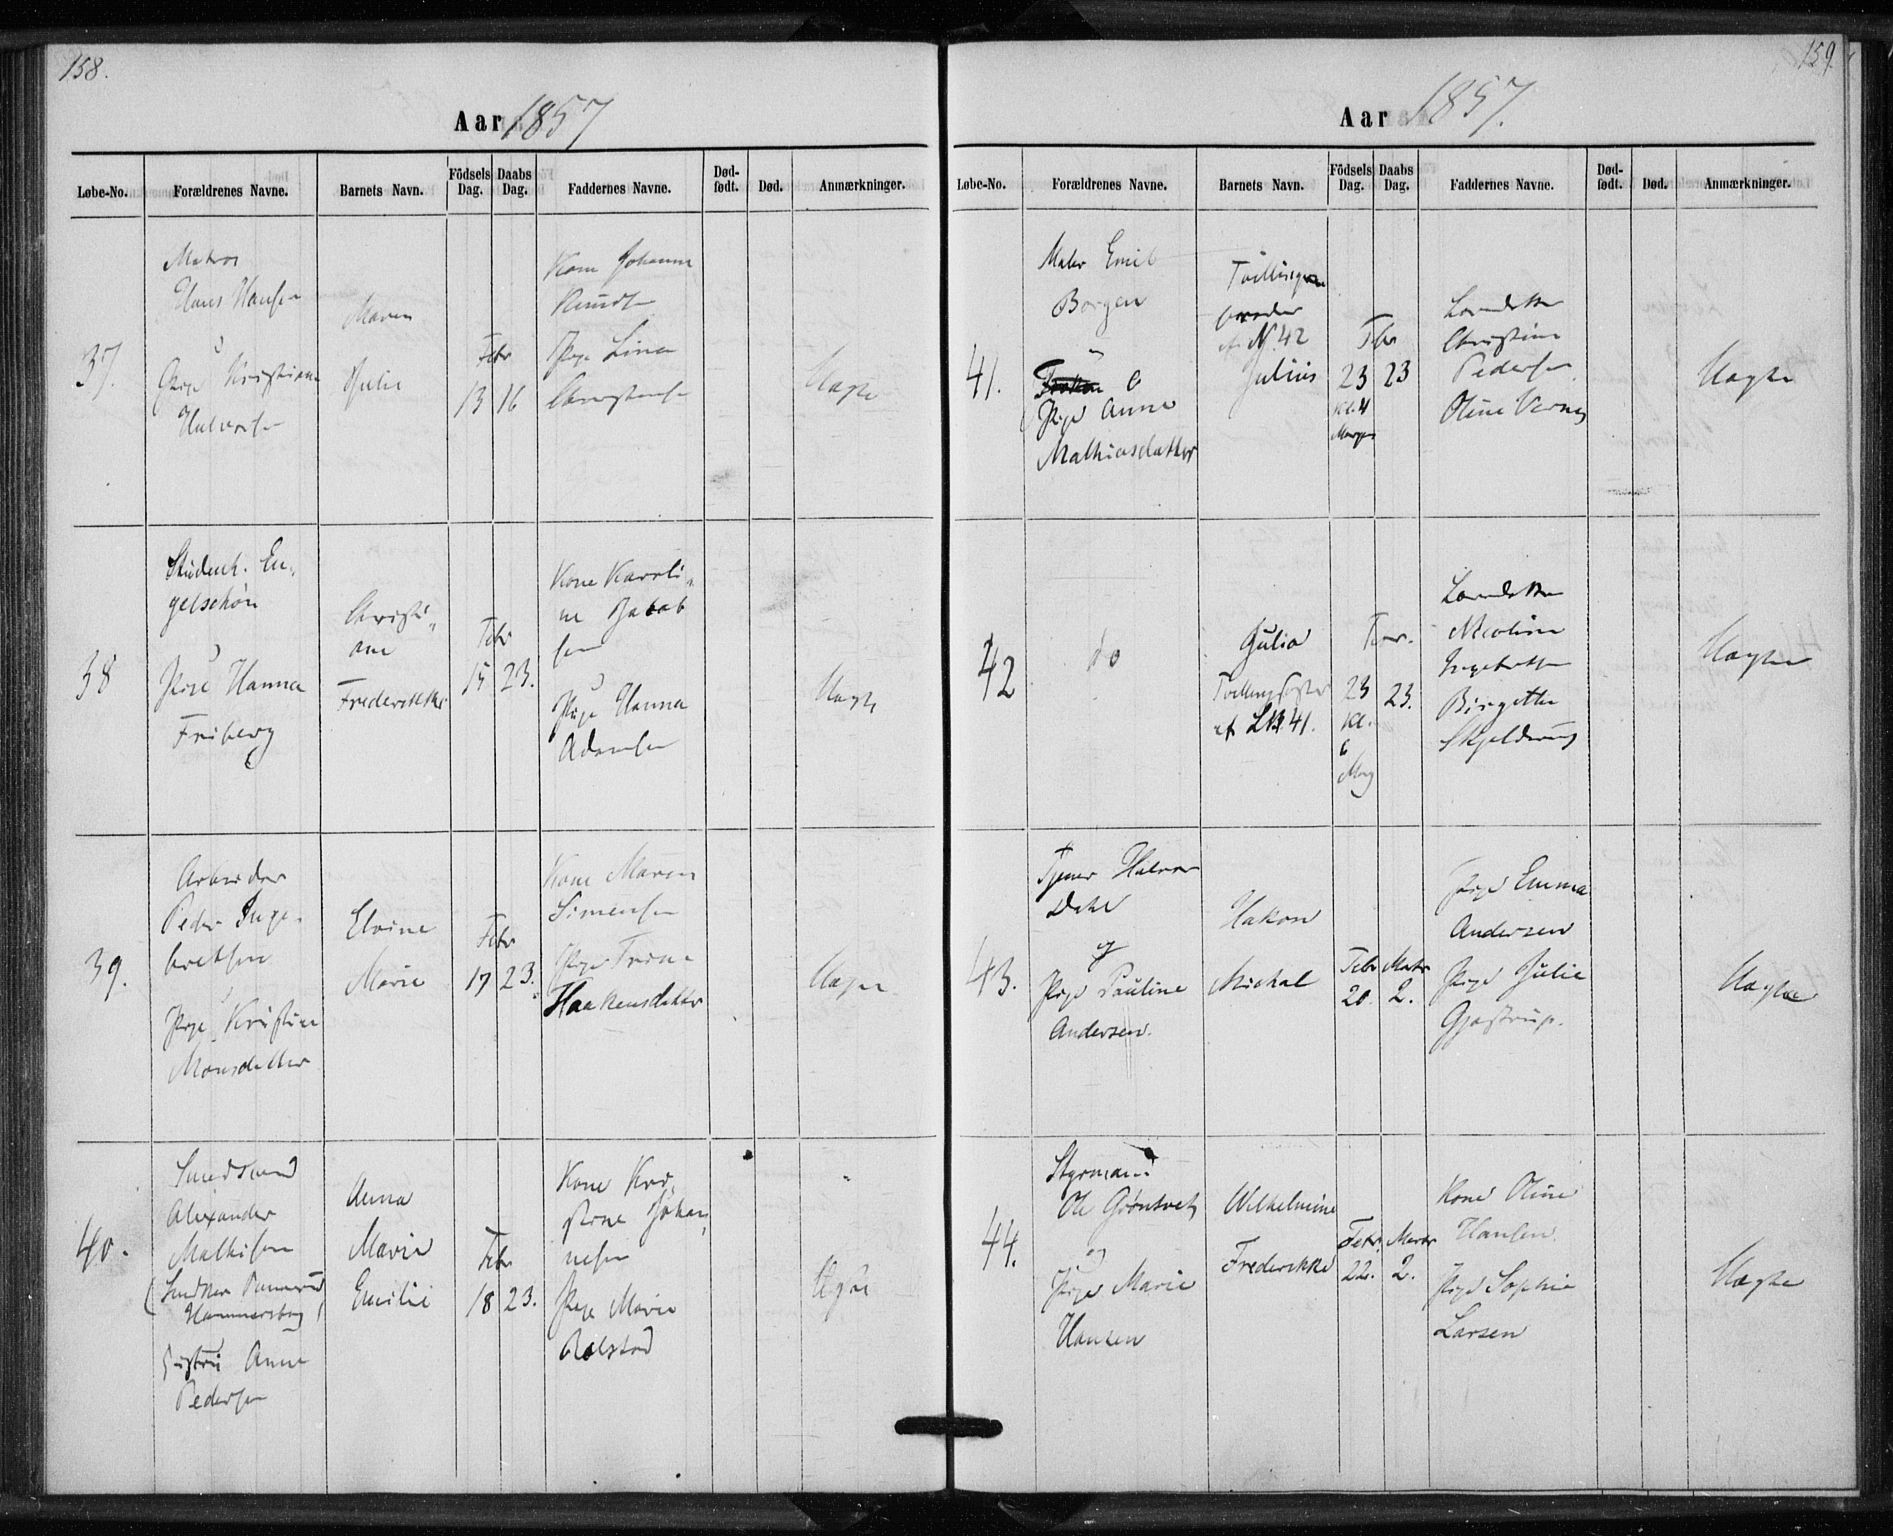 158.
Aar 1857
Løbe-No. Forældrenes Navne. Barnets Navn. Födsels Dag. Daabs Dag. Faddernes Navne. Død-født. Død. Anmærkninger.
37.
Matros
Hans Hansen
Pige Kristiane
Halvorsen
Maren
Julie
Febr
13 16
Kone Johanne
Knudsen
Pige Lina
Christensen
Uægte
38
Student. En-
gelschøn
Pige Hanna
Friberg
Christi-
ane
Frederikke
Febr
15 23.
Kone Karoli-
ne Jakob
sen
Pige Hanna
Adamsen
Uægte
39.
Arbeider
Peder Inge-
bretsen
Pige Kristine
Monsdatter
Elvine
Marie
Febr
17 23.
Kone Maren
Simensen
Pige Trine
Haakensdatter
Uægte
40.
Alexander
Mathisen
Hammersborg
Anne
Pedersen
Anna
Marie
Emilie
Febr
18 23.
Kone Kri-
stine Johan-
nesen
Pige Marie
Rolstad
Uægte
159.
Aar 1857.
Løbe-No. Forældrenes Navne. Barnets Navn. Födsels Dag. Daabs Dag. Faddernes Navne. Død-født. Død. Anmærkninger.
41.
Maler Emil
Borgen
Pige Anne
Mathiasdatter
Tvilling
broder
af N. 42
Julius
Febr
23 23
Kl. 4
Morgen
Christine
Pedersen
Oline Vernes
Uægte
42
do
Julia
Tvillingsøster
af LN 41.
23 23.
Kl.
6
Morg
Nicoline
Ingebretsen
Birgitte
Skjelderup
Uægte
43.
Tjener Halvor
Dahl
og
Pige Pauline
Andersen.
Hakon
Michal
Febr Marts
20 2.
Pige Emma
Andersen
Pige Julie
Gjøstrup.
Uægte
44.
Styrmand
Ole Grøntvet
og
Pige Marie
Hansen
Wilhelmine
Frederikke
Febr. Marts
22. 2.
Kone Oline
Hansen.
Pige Sophie
Larsen
Uægte